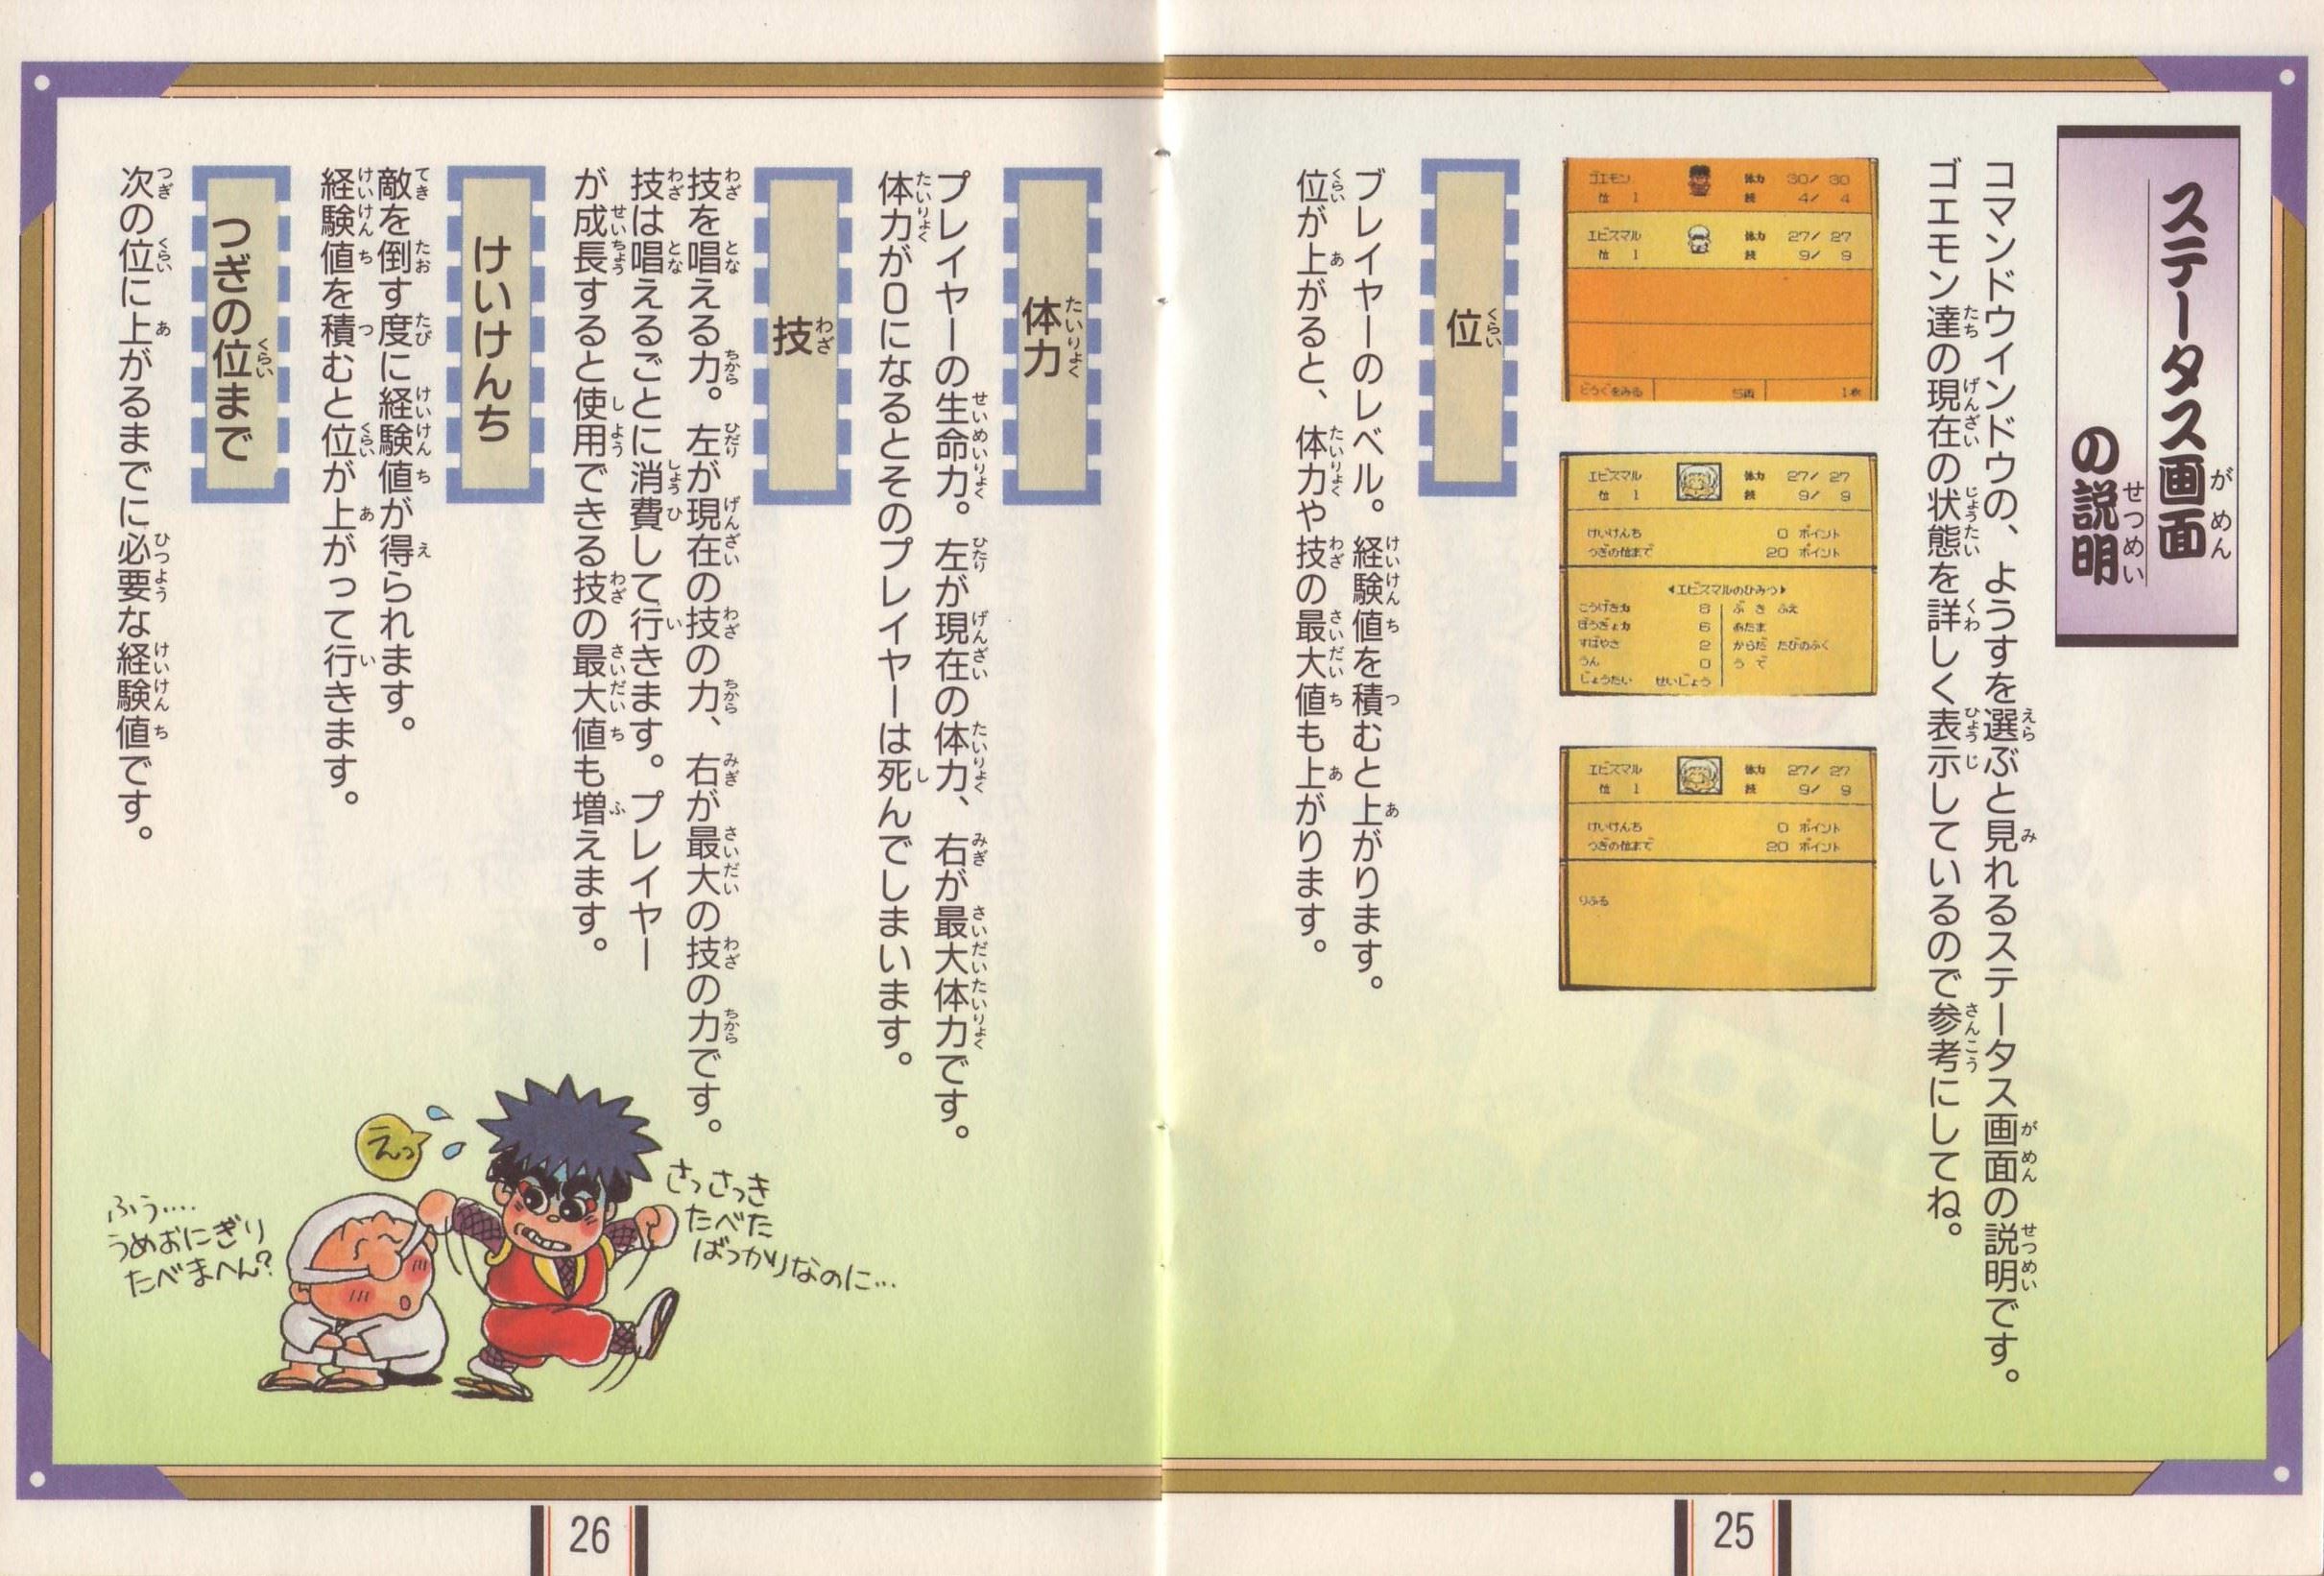 ステータス画面
の説明
コマンドウインドウの、ようすを選ぶと見れるステータス画面の説明です。
ゴエモン達の現在の状態を詳しく表示しているので参考にしてね。
ゴエモン 体力 30/ 30
位 1 技 4/ 4
エビスマル 体力 27/ 27
位 1 技 9/ 9
どうぐをみる 5両 1枚
エビスマル 体力 27/ 27
位 1 技 9/ 9
けいけんち 0 ポイント
つぎの位まで 20 ポイント
◀エビスマルのひみつ▶
こうげき力 8 ぶ き ふえ
ぼうぎょ力 6 あたま
すばやさ 2 からだ たびのふく
うん 0 う で
じょうたい せいじょう
エビスマル 体力 27/ 27
位 1 技 9/ 9
けいけんち 0 ポイント
つぎの位まで 20 ポイント
りふる
位
プレイヤーのレベル。経験値を積むと上がります。
位が上がると、体力や技の最大値も上がります。
25
体力
プレイヤーの生命力。左が現在の体力、右が最大体力です。
体力が0になるとそのプレイヤーは死んでしまいます。
技
技を唱える力。左が現在の技の力、右が最大の技の力です。
技は唱えるごとに消費して行きます。プレイヤー
が成長すると使用できる技の最大値も増えます。
けいけんち
敵を倒す度に経験値が得られます。
経験値を積むと位が上がって行きます。
つぎの位まで
次の位に上がるまでに必要な経験値です。
さっさっき
たべた
ばっかりなのに…
えっ
ふぅ‥‥
うめおにぎり
たべまへん?
26